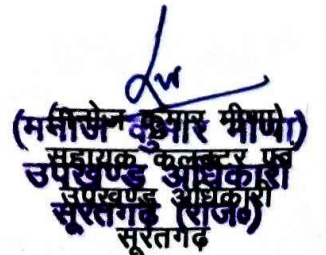 (मनोज कुमार मीणा)
(मनोज कुमार मीणा)
सहायक कलक्टर एवं
उपखण्ड अधिकारी
उपखण्ड अधिकारी
सूरतगढ़ (राज०)
सूरतगढ़